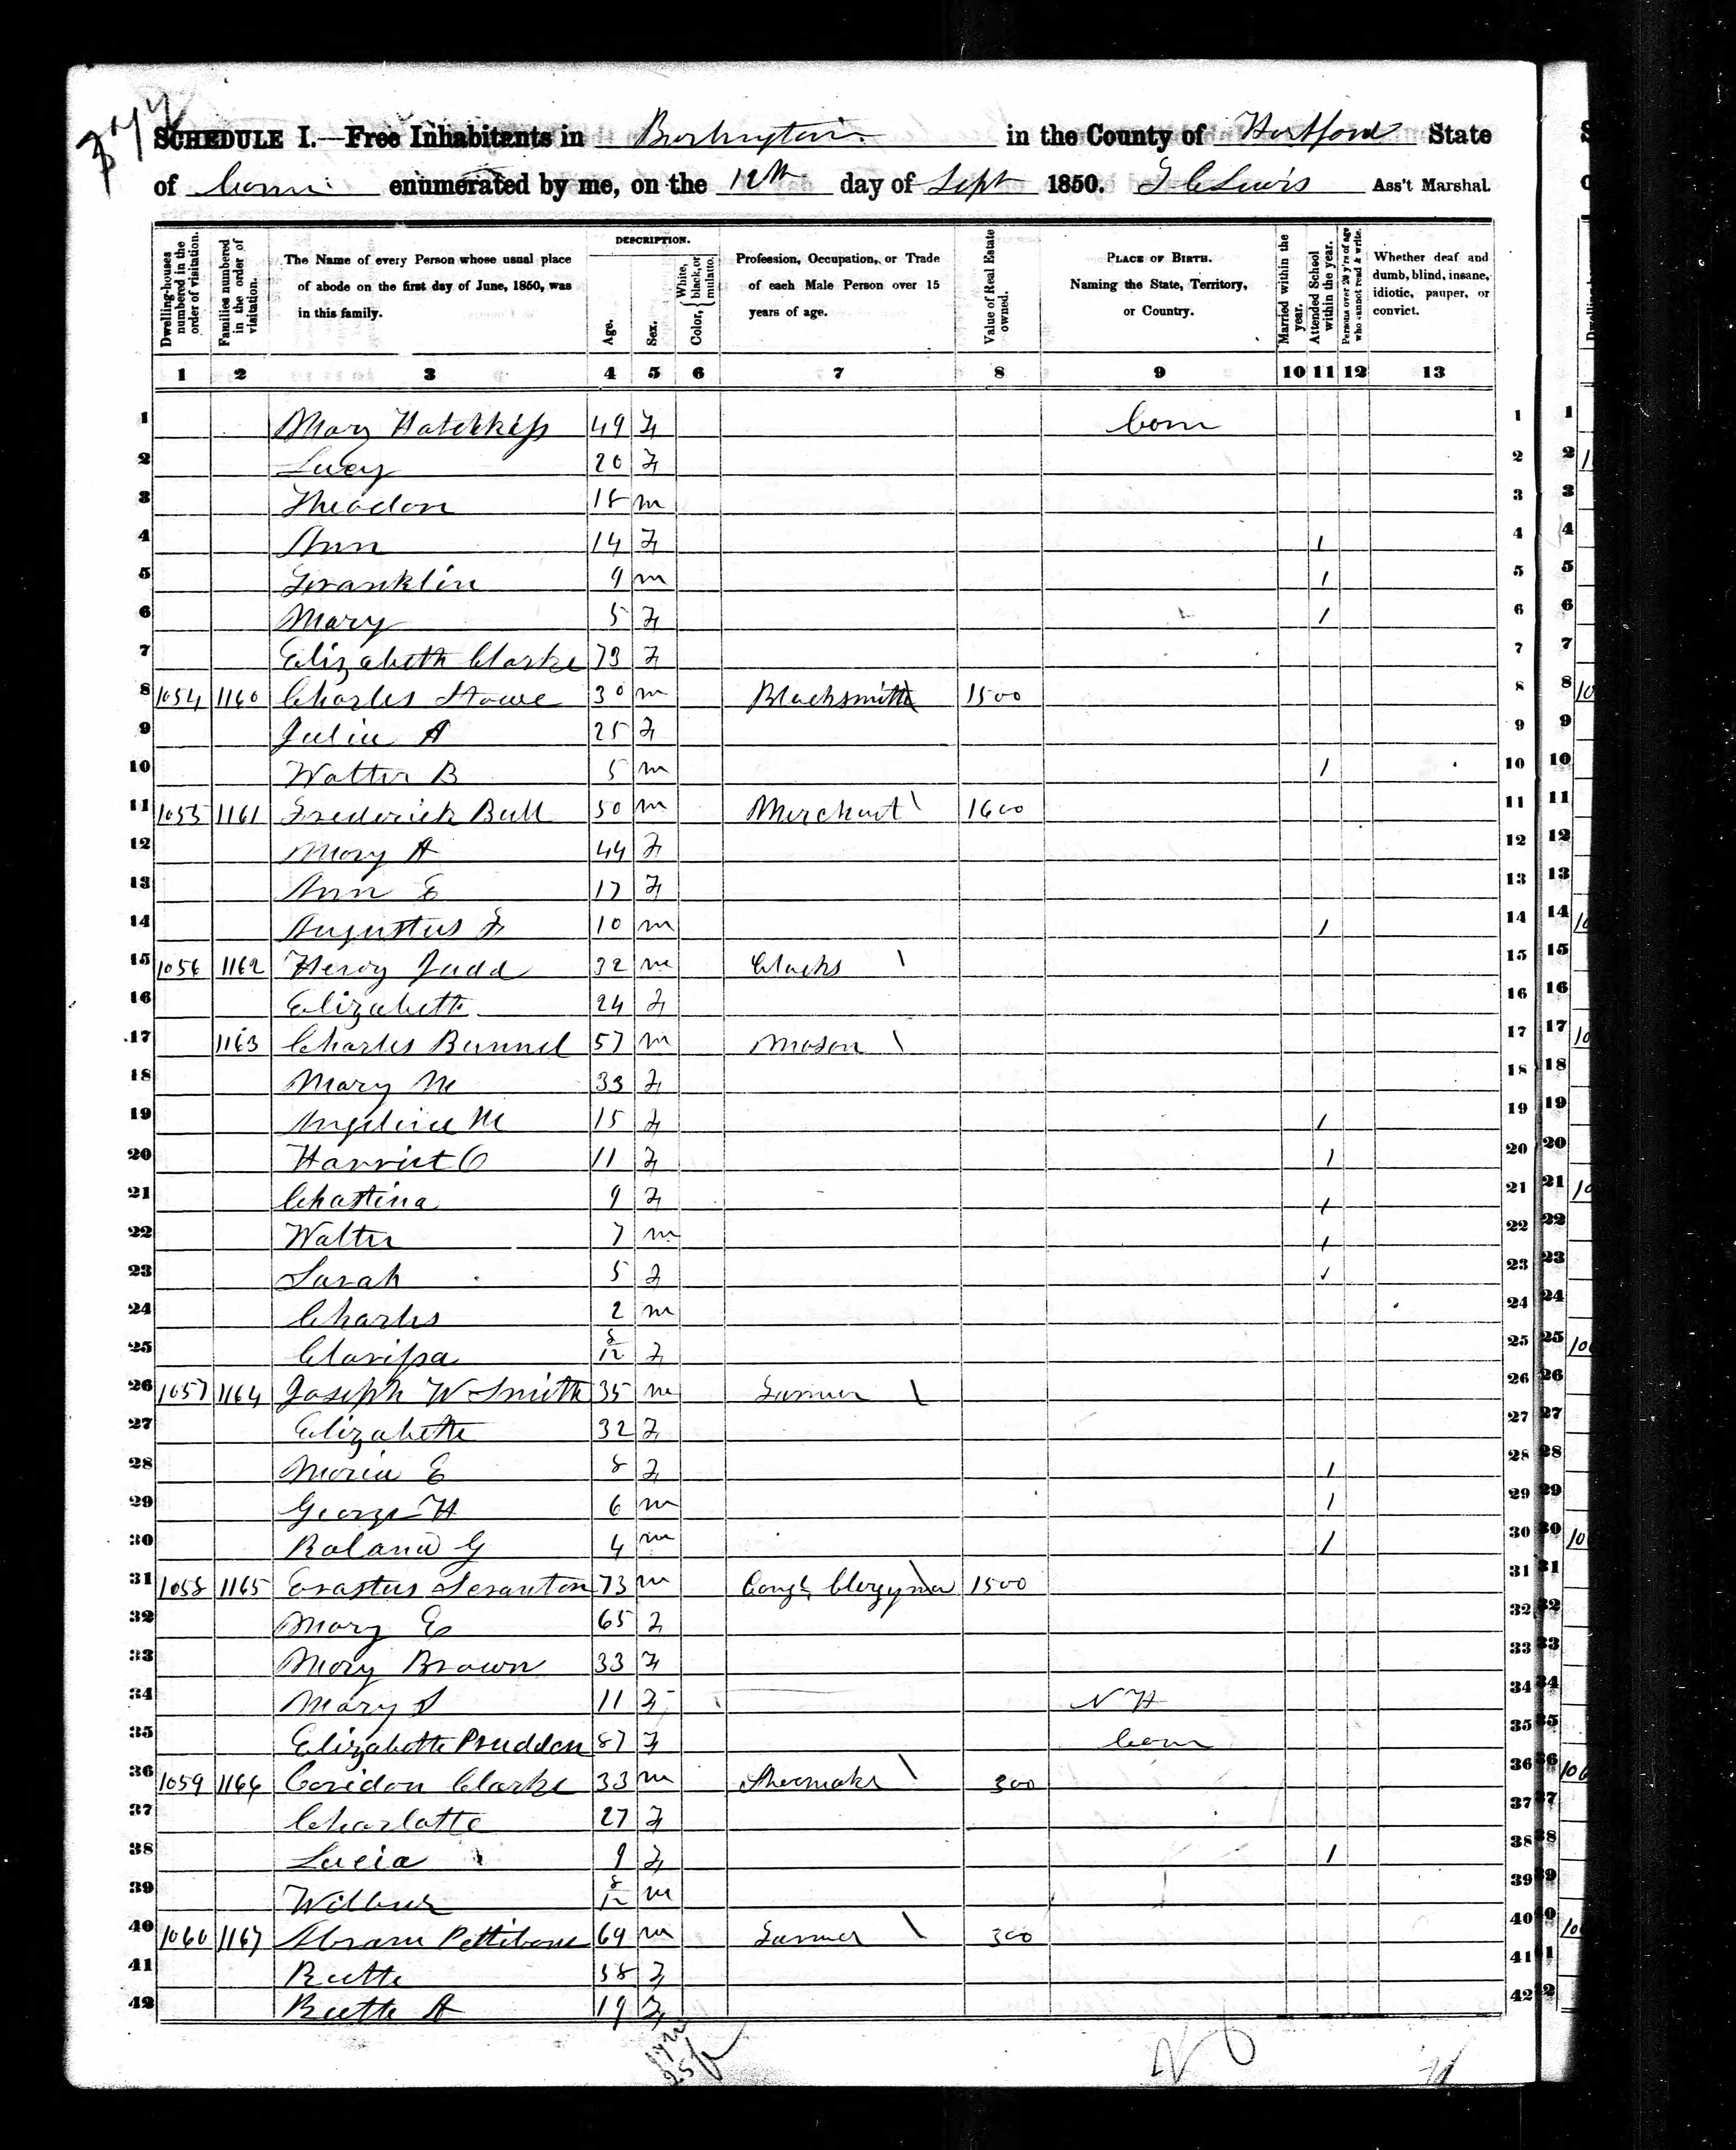 SCHEDULE I.—Free Inhabitants in Burlington in the County of Hartford State
of Conn: enumerated by me, on the 12th day of Sept 1850. Ass't Marshal.
Dwelling-houses numbered in the order of visitation.
Families numbered in the order of visitation.
The Name of every Person whose usual place of abode on the first day of June, 1850, was in this family.
DESCRIPTION.
Age.
Sex.
Color, White, black, or mulatto.
Profession, Occupation, or Trade of each Male Person over 15 years of age.
Value of Real Estate owned.
PLACE OF BIRTH. Naming the State, Territory, or Country.
Married within the year.
Attended School within the year.
Persons over 20 y'rs of age who cannot read & write.
Whether deaf and dumb, blind, insane, idiotic, pauper, or convict.
1 2 3 4 5 6 7 8 9 10 11 12 13
1 Mary Hotchkiss 49 F Conn 1
2 Lucy 20 F 2
3 Theodore 18 m 3
4 Ann 14 F / 4
5 Franklin 9 m / 5
6 Mary 5 F / 6
7 Elizabeth Clarke 73 F 7
8 1054 1160 Charles Stowe 30 m Blacksmith 1500 8
9 Julia A 25 F 9
10 Walter B 5 m / 10
11 1055 1161 Frederick Bull 50 m Merchant \ 1600 11
12 Mary A 44 F 12
13 Ann E 17 F 13
14 Augustus F 10 m / 14
15 1056 1162 Henry Judd 32 m Clocks \ 15
16 Elizabeth 24 F 16
17 1163 Charles Bunnel 57 m Mason \ 17
18 Mary M 33 F 18
19 Angeline M 15 F / 19
20 Harriet O 11 F / 20
21 Chastina 9 F / 21
22 Walter 7 m / 22
23 Sarah 5 F / 23
24 Charles 2 m 24
25 Clarissa 8/12 F 25
26 1057 1164 Joseph W Smith 35 m Farmer \ 26
27 Elizabeth 32 F 27
28 Maria E 8 F / 28
29 George H 6 m / 29
30 Roland G 4 m / 30
31 1058 1165 Erastus Scranton 73 m Cong. Clergyman 1500 31
32 Mary E 65 F 32
33 Mary Brown 33 F 33
34 Mary S 11 F N H 34
35 Elizabeth Prudden 87 F Conn 35
36 1059 1166 Coridon Clarke 33 m Shoemaker \ 300 36
37 Charlotte 27 F 37
38 Lucia 9 F / 38
39 Wilbur 8/12 m 39
40 1060 1167 Abram Pettibone 69 m Farmer \ 300 40
41 Ruth 58 F 41
42 Ruth A 19 F 42